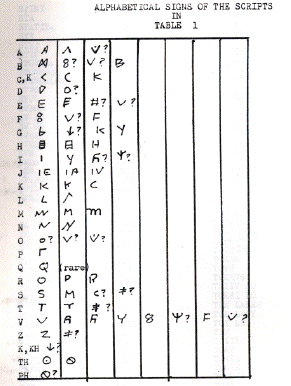 ALPHABETICAL SIGNS OF THE SCRIPTS
IN
TABLE 1
A A Λ
B 8? V? B
C,K < C K
D D O?
E E F #? V?
F 8 V? F
G b ↓? K Y
H 日 日 H
I I Y Ψ?
J IE IA IV
K K K C
L L Λ
M M m
N N N
O O? V?
P Γ
Q Q (rare)
R O P R
S S M C? #?
T T T #?
V V A Y 8 Ψ? F
Z Z #?
K,KH ↓?
TH ⊙ ⊙
PH ?